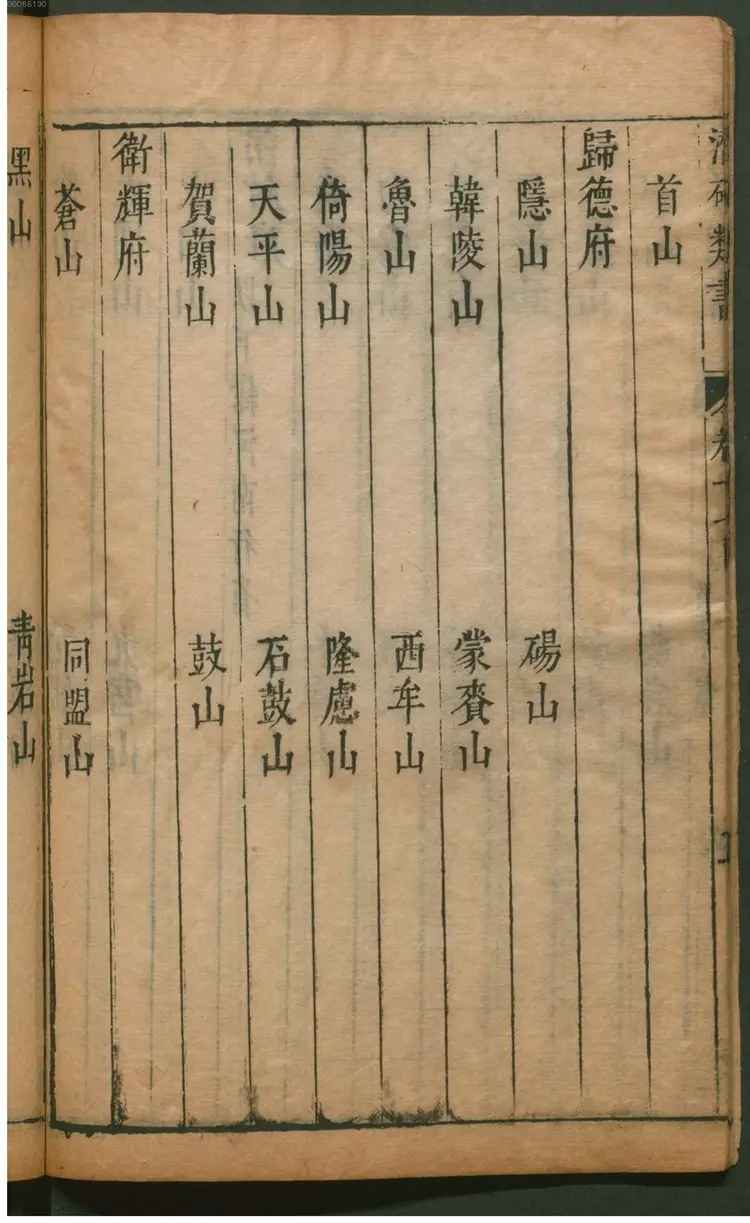 類書
首山
歸德府
隱山　碭山
韓陵山　蒙賚山
魯山　西牟山
倚陽山　隆慮山
天平山　石鼓山
賀蘭山　鼓山
衛輝府
蒼山　同盟山
黑山　青岩山